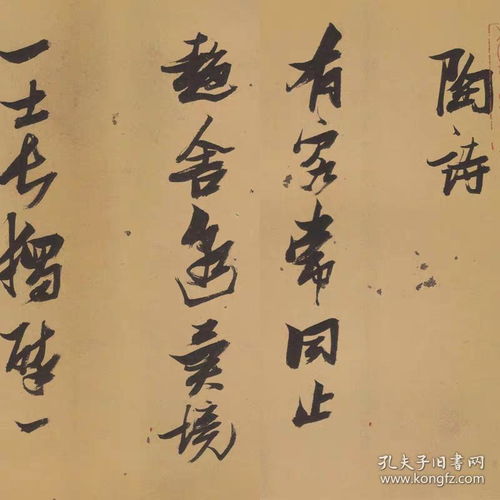 陶詩
有客常同止
趣舍邈異境
一士長獨醉一
孔夫子旧书网
www.kongfz.com